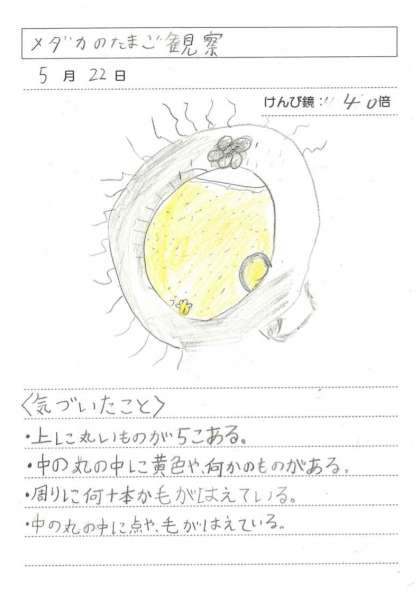 メダカのたまご観察
5月22日
けんび鏡：40倍
〈気づいたこと〉
・上に丸いものが5こある。
・中の丸の中に黄色や、何かのものがある。
・周りに何十本か毛がはえている。
・中の丸の中に点や、毛がはえている。